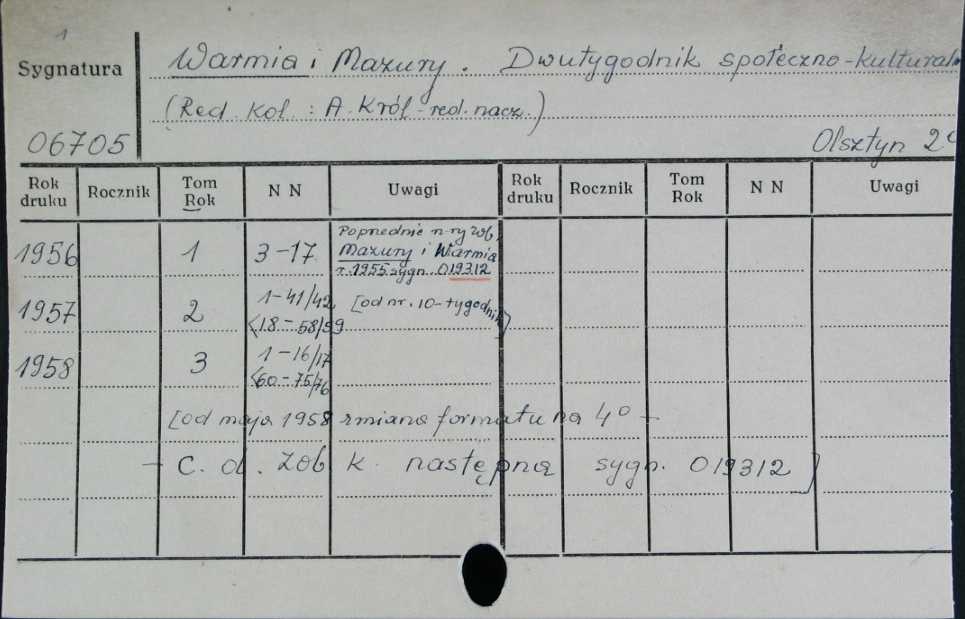 1
Sygnatura
Warmia i Mazury. Dwutygodnik społeczno-kulturaln
(Red. Kol.: A. Król - red. nacz.)
06705
Olsztyn 2°
Rok druku Rocznik Tom Rok N N Uwagi Rok druku Rocznik Tom Rok N N Uwagi
1956 1 3-17 Poprzednie n-ry zob. Mazury i Warmia r. 1955 sygn. 019312
1957 2 1-41/42 <18-58/59 [od nr. 10-tygodnik]
1958 3 1-16/17 <60-75/76
[od maja 1958 zmiana formatu na 4° -
- c. d. zob k. następną sygn. 019312]